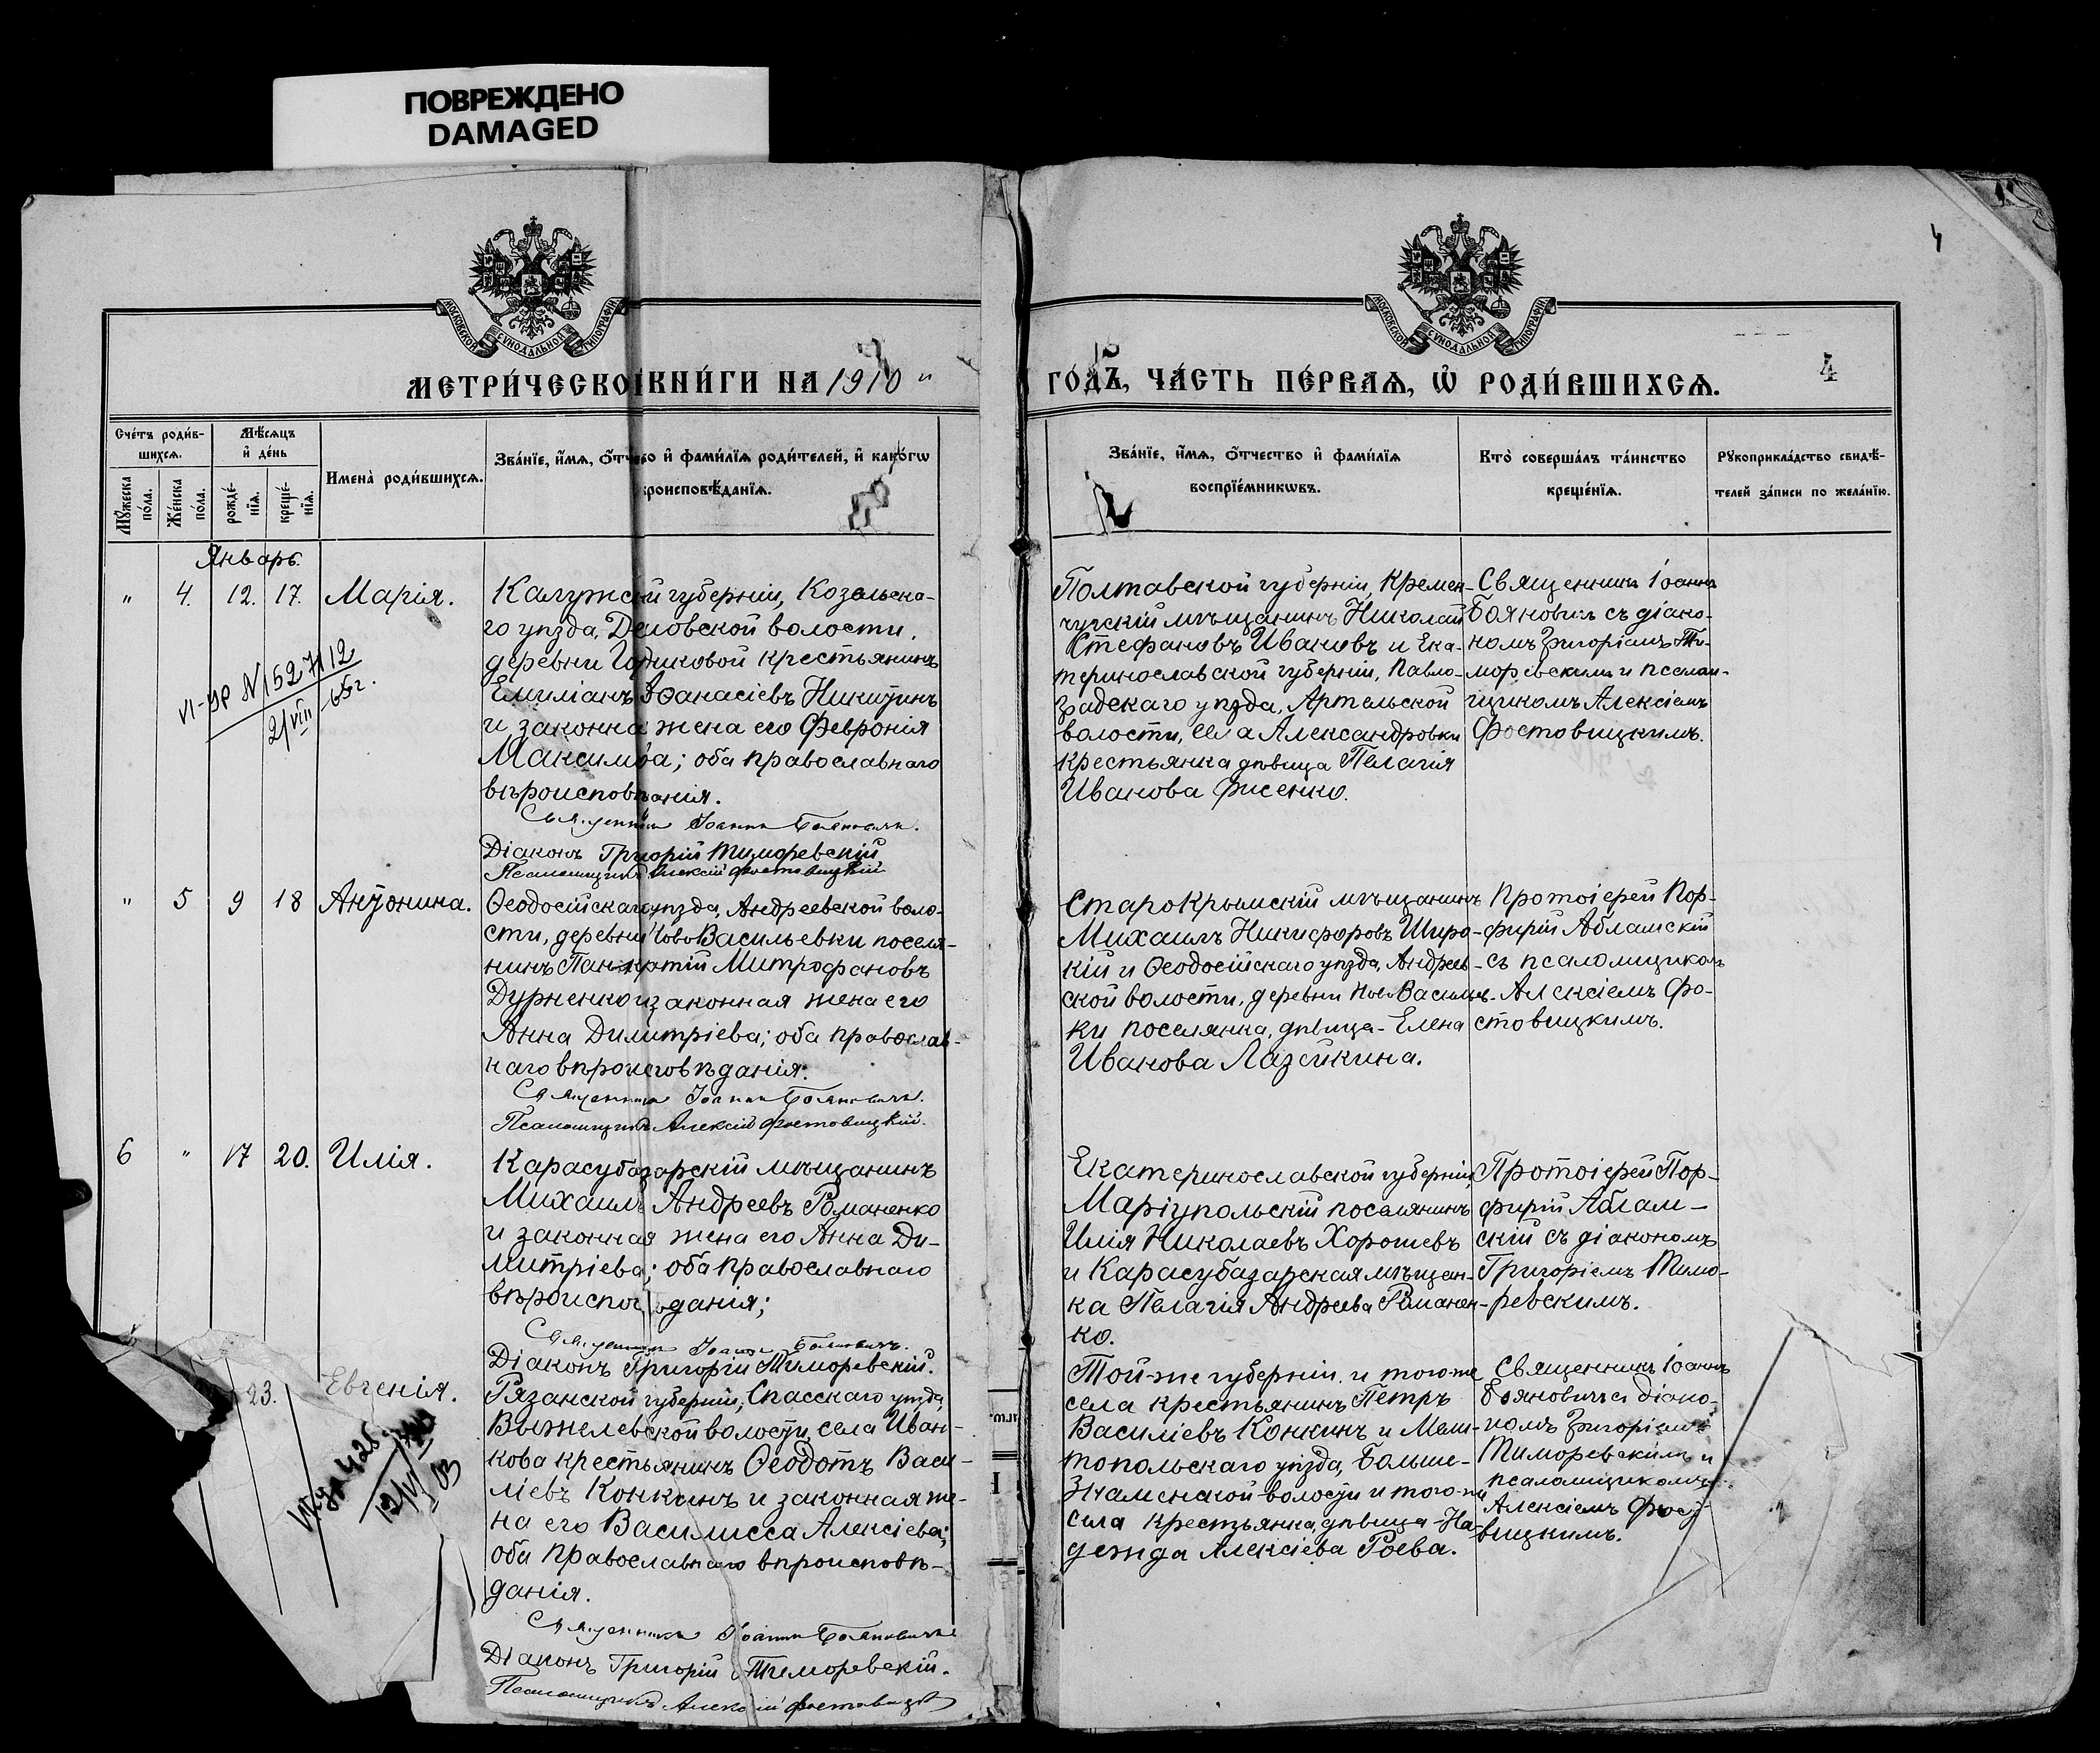 ПОВРЕЖДЕНО
DAMAGED
МОСКОВСКОЙ СѴНОДАЛЬНОЙ ТИПОГРАФІИ
МОСКОВСКОЙ СѴНОДАЛЬНОЙ ТИПОГРАФІИ
4
МЕТРИ́ЧЕСКО КНИ́ГИ НА 1910 "
ГО́ДЪ, ЧА́СТЬ ПЕ́РВАѦ, Ѡ҆ РОДИ́ВШИХСѦ.
4
Сче́тъ роди́в-
шихсѧ.
Мꙋ́жеска по́ла.
Же́нска по́ла.
Мѣ́сѧцъ
и҆ де́нь
рожде́-
нїѧ.
креще́-
нїѧ.
Имена̀ роди́вшихсѧ.
Зва́нїе, и҆́мѧ, ѻ҆́тче во и҆ фами́лїѧ роди́телей, и҆ како́гѡ
роисповѣ́данїѧ.
Зва́нїе, и҆́мѧ, ѻ҆́тчество и҆ фами́лїѧ
воспрїе́мникѡвъ.
Кто̀ соверша́лъ та́инство
креще́нїѧ.
Рꙋкоприкла́дство свидѣ́-
телей за́писи по жела́нїю.
Январь.
" 4. 12. 17. Марія.
VI-ЯР N 152 7112
2/VIII-65г.
Калужской губерніи, Козельска-
го уѣзда, волости,
деревни крестьянинъ
Емиліанъ Аѳанасіевъ Никитинъ
и законна жена его Февронія
Максимова; оба православнаго
вѣроисповѣданія.
Священникъ Іоаннъ Бояновичъ.
Діаконъ Григорій Тиморевскій
Псаломщикъ Алексій Фостовицкій
Полтавской губерніи, Кремен-
чугскій мѣщанинъ Николай
Стефановъ Ивановъ и Ека-
теринославской губерніи, Павло-
градскаго уѣзда, Артельской
волости, села Александровки
крестьянка дѣвица Пелагія
Иванова Фисенко.
Священникъ Іоаннъ
Бояновичъ съ діако-
номъ Григоріемъ Ти-
моревскимъ и псалом-
щикомъ Алексіемъ
Фостовицкимъ.
" 5 9 18 Антонина.
Ѳеодосійскаго уѣзда, Андреевской воло-
сти, деревни Ново Васильевки поселя-
нинъ Панкратій Митрофановъ
Дурненко и законная жена его
Анна Димитріева; оба православ-
наго вѣроисповѣданія.
Священникъ Іоаннъ Бояновичъ.
Псаломщикъ Алексій Фостовицкій.
Старокрымскій мѣщанинъ
Михаилъ Никифоровъ Широ-
кій и Ѳеодосійскаго уѣзда, Андреев-
ской волости, деревни Ново Васильев-
ки поселянка, дѣвица - Елена
Иванова Лазейкина.
Протоіерей Пор-
фирій Абламскій
съ псаломщикомъ
Алексіемъ Фо-
стовицкимъ.
6 " 17 20. Илія.
Карасубазарскій мѣщанинъ
Михаилъ Андреевъ Романенко
и законная жена его Анна Ди-
митріева; оба православнаго
вѣроисповѣданія;
Священникъ Іоаннъ Бояновичъ.
Діаконъ Григорій Тиморевскій.
Екатеринославской губерніи,
Маріупольскій поселянинъ
Илія Николаевъ Хорошевъ
и Карасубазарская мѣщан-
ка Пелагія Андреева Романен-
ко.
Протоіерей Пор-
фирій Аблам-
скій съ діакономъ
Григоріемъ Тимо-
ревскимъ.
23. Евгенія.
Рязанской губерніи, Спасскаго уѣзда,
Выжелевской волости, села Иван-
кова крестьянинъ Ѳеодотъ Васи-
ліевъ Конкинъ и законная же-
на его Василисса Алексіева;
оба православнаго вѣроисповѣ-
данія.
Священникъ Іоаннъ Бояновичъ
Діаконъ Григорій Тиморевскій.
Псаломщикъ Алексій Фостовицкій
Той-же губерніи и того же
села крестьянинъ Петръ
Василіевъ Конкинъ и Мели-
топольскаго уѣзда, Больше-
Знаменской волости и того-же
села крестьянка, дѣвица - На-
дежда Алексіева Роева.
Священникъ Іоаннъ
Бояновичъ съ діако-
номъ Григоріемъ
Тиморевскимъ и
псаломщикомъ
Алексіемъ Фосто-
вицкимъ.